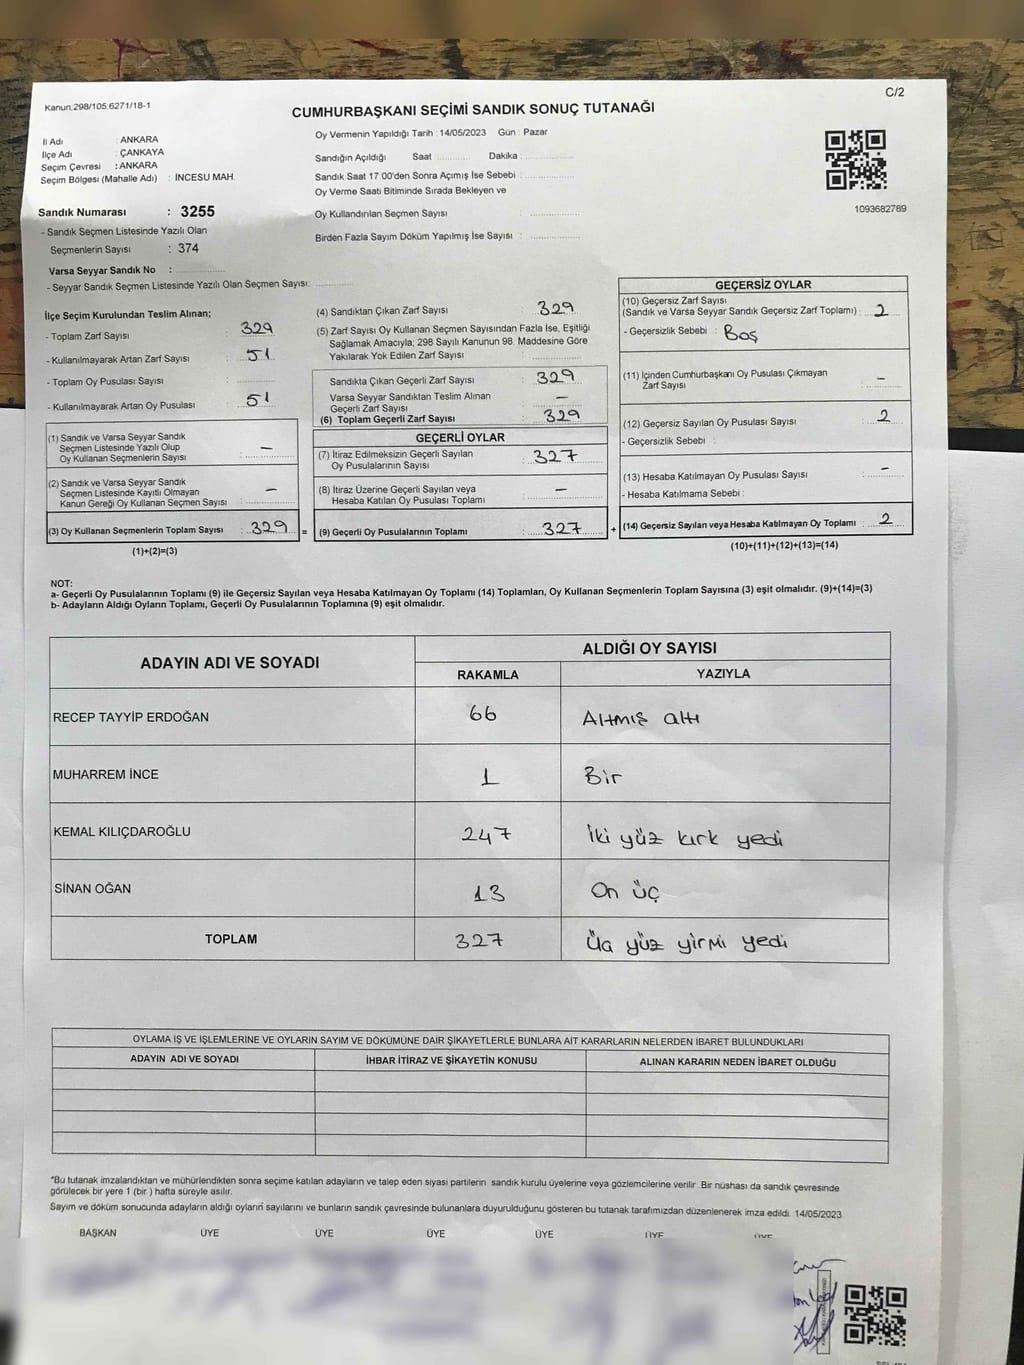 C/2
Kanun:298/105.6271/18-1
CUMHURBAŞKANI SEÇİMİ SANDIK SONUÇ TUTANAĞI
İl Adı : ANKARA
İlçe Adı : ÇANKAYA
Seçim Çevresi : ANKARA
Seçim Bölgesi (Mahalle Adı) : İNCESU MAH.
Sandık Numarası : 3255
- Sandık Seçmen Listesinde Yazılı Olan
Seçmenlerin Sayısı : 374
Varsa Seyyar Sandık No :
- Seyyar Sandık Seçmen Listesinde Yazılı Olan Seçmen Sayısı:
Oy Vermenin Yapıldığı Tarih : 14/05/2023 Gün : Pazar
Sandığın Açıldığı Saat Dakika :
Sandık Saat 17.00'den Sonra Açımış İse Sebebi :
Oy Verme Saati Bitiminde Sırada Bekleyen ve
Oy Kullandırılan Seçmen Sayısı :
Birden Fazla Sayım Döküm Yapılmış İse Sayısı :
1093682789
İlçe Seçim Kurulundan Teslim Alınan;
- Toplam Zarf Sayısı : 329
- Kullanılmayarak Artan Zarf Sayısı : 51
- Toplam Oy Pusulası Sayısı :
- Kullanılmayarak Artan Oy Pusulası : 51
(1) Sandık ve Varsa Seyyar Sandık
Seçmen Listesinde Yazılı Olup
Oy Kullanan Seçmenlerin Sayısı : –
(2) Sandık ve Varsa Seyyar Sandık
Seçmen Listesinde Kayıtlı Olmayan
Kanun Gereği Oy Kullanan Seçmen Sayısı : –
(3) Oy Kullanan Seçmenlerin Toplam Sayısı : 329 =
(1)+(2)=(3)
(4) Sandıktan Çıkan Zarf Sayısı : 329
(5) Zarf Sayısı Oy Kullanan Seçmen Sayısından Fazla İse, Eşitliği
Sağlamak Amacıyla; 298 Sayılı Kanunun 98. Maddesine Göre
Yakılarak Yok Edilen Zarf Sayısı :
Sandıkta Çıkan Geçerli Zarf Sayısı : 329
Varsa Seyyar Sandıktan Teslim Alınan
Geçerli Zarf Sayısı : –
(6) Toplam Geçerli Zarf Sayısı : 329
GEÇERLİ OYLAR
(7) İtiraz Edilmeksizin Geçerli Sayılan
Oy Pusulalarının Sayısı : 327
(8) İtiraz Üzerine Geçerli Sayılan veya
Hesaba Katılan Oy Pusulası Toplamı : –
(9) Geçerli Oy Pusulalarının Toplamı : 327 +
GEÇERSİZ OYLAR
(10) Geçersiz Zarf Sayısı
(Sandık ve Varsa Seyyar Sandık Geçersiz Zarf Toplamı) : 2
- Geçersizlik Sebebi : Boş
(11) İçinden Cumhurbaşkanı Oy Pusulası Çıkmayan
Zarf Sayısı : –
(12) Geçersiz Sayılan Oy Pusulası Sayısı : 2
- Geçersizlik Sebebi :
(13) Hesaba Katılmayan Oy Pusulası Sayısı : –
- Hesaba Katılmama Sebebi :
(14) Geçersiz Sayılan veya Hesaba Katılmayan Oy Toplamı : 2
(10)+(11)+(12)+(13)=(14)
NOT:
a- Geçerli Oy Pusulalarının Toplamı (9) ile Geçersiz Sayılan veya Hesaba Katılmayan Oy Toplamı (14) Toplamları, Oy Kullanan Seçmenlerin Toplam Sayısına (3) eşit olmalıdır. (9)+(14)=(3)
b- Adayların Aldığı Oyların Toplamı, Geçerli Oy Pusulalarının Toplamına (9) eşit olmalıdır.
ADAYIN ADI VE SOYADI ALDIĞI OY SAYISI
RAKAMLA YAZIYLA
RECEP TAYYİP ERDOĞAN 66 Altmış altı
MUHARREM İNCE 1 Bir
KEMAL KILIÇDAROĞLU 247 İki yüz kırk yedi
SİNAN OĞAN 13 On üç
TOPLAM 327 Üç yüz yirmi yedi
OYLAMA İŞ VE İŞLEMLERİNE VE OYLARIN SAYIM VE DÖKÜMÜNE DAİR ŞİKAYETLERLE BUNLARA AİT KARARLARIN NELERDEN İBARET BULUNDUKLARI
ADAYIN ADI VE SOYADI İHBAR İTİRAZ VE ŞİKAYETİN KONUSU ALINAN KARARIN NEDEN İBARET OLDUĞU
*Bu tutanak imzalandıktan ve mühürlendikten sonra seçime katılan adayların ve talep eden siyasi partilerin sandık kurulu üyelerine veya gözlemcilerine verilir. Bir nüshası da sandık çevresinde
görülecek bir yere 1 (bir ) hafta süreyle asılır.
Sayım ve döküm sonucunda adayların aldığı oyların sayılarını ve bunların sandık çevresinde bulunanlara duyurulduğunu gösteren bu tutanak tarafımızdan düzenlenerek imza edildi. 14/05/2023
BAŞKAN ÜYE ÜYE ÜYE ÜYE ÜYE ÜYE